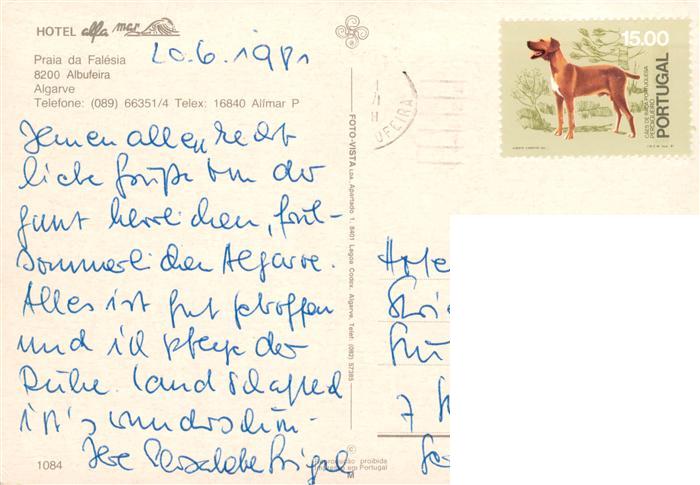 HOTEL alfa mar
Praia da Falésia
8200 Albufeira
Algarve
Telefone: (089) 66351/4 Telex: 16840 Alímar P
20.6.1981
Ihnen allen recht
liebe Grüße von der
ganz herrlichen, früh-
sommerlichen Algarve.
Alles ist gut getroffen
und ich pflege der
Ruhe. Landschaftl
ist's wunderschön -
Ihre
1084
FOTO-VISTA Lda. Apartado 1. 8401 Lagoa Codex. Algarve. Telef. (082) 57385
©
Reprodução proibida
Impresso em Portugal
M
UFEIRA
15.00
PORTUGAL
CÃES DE RAÇA PORTUGUESA
PERDIGUEIRO
7